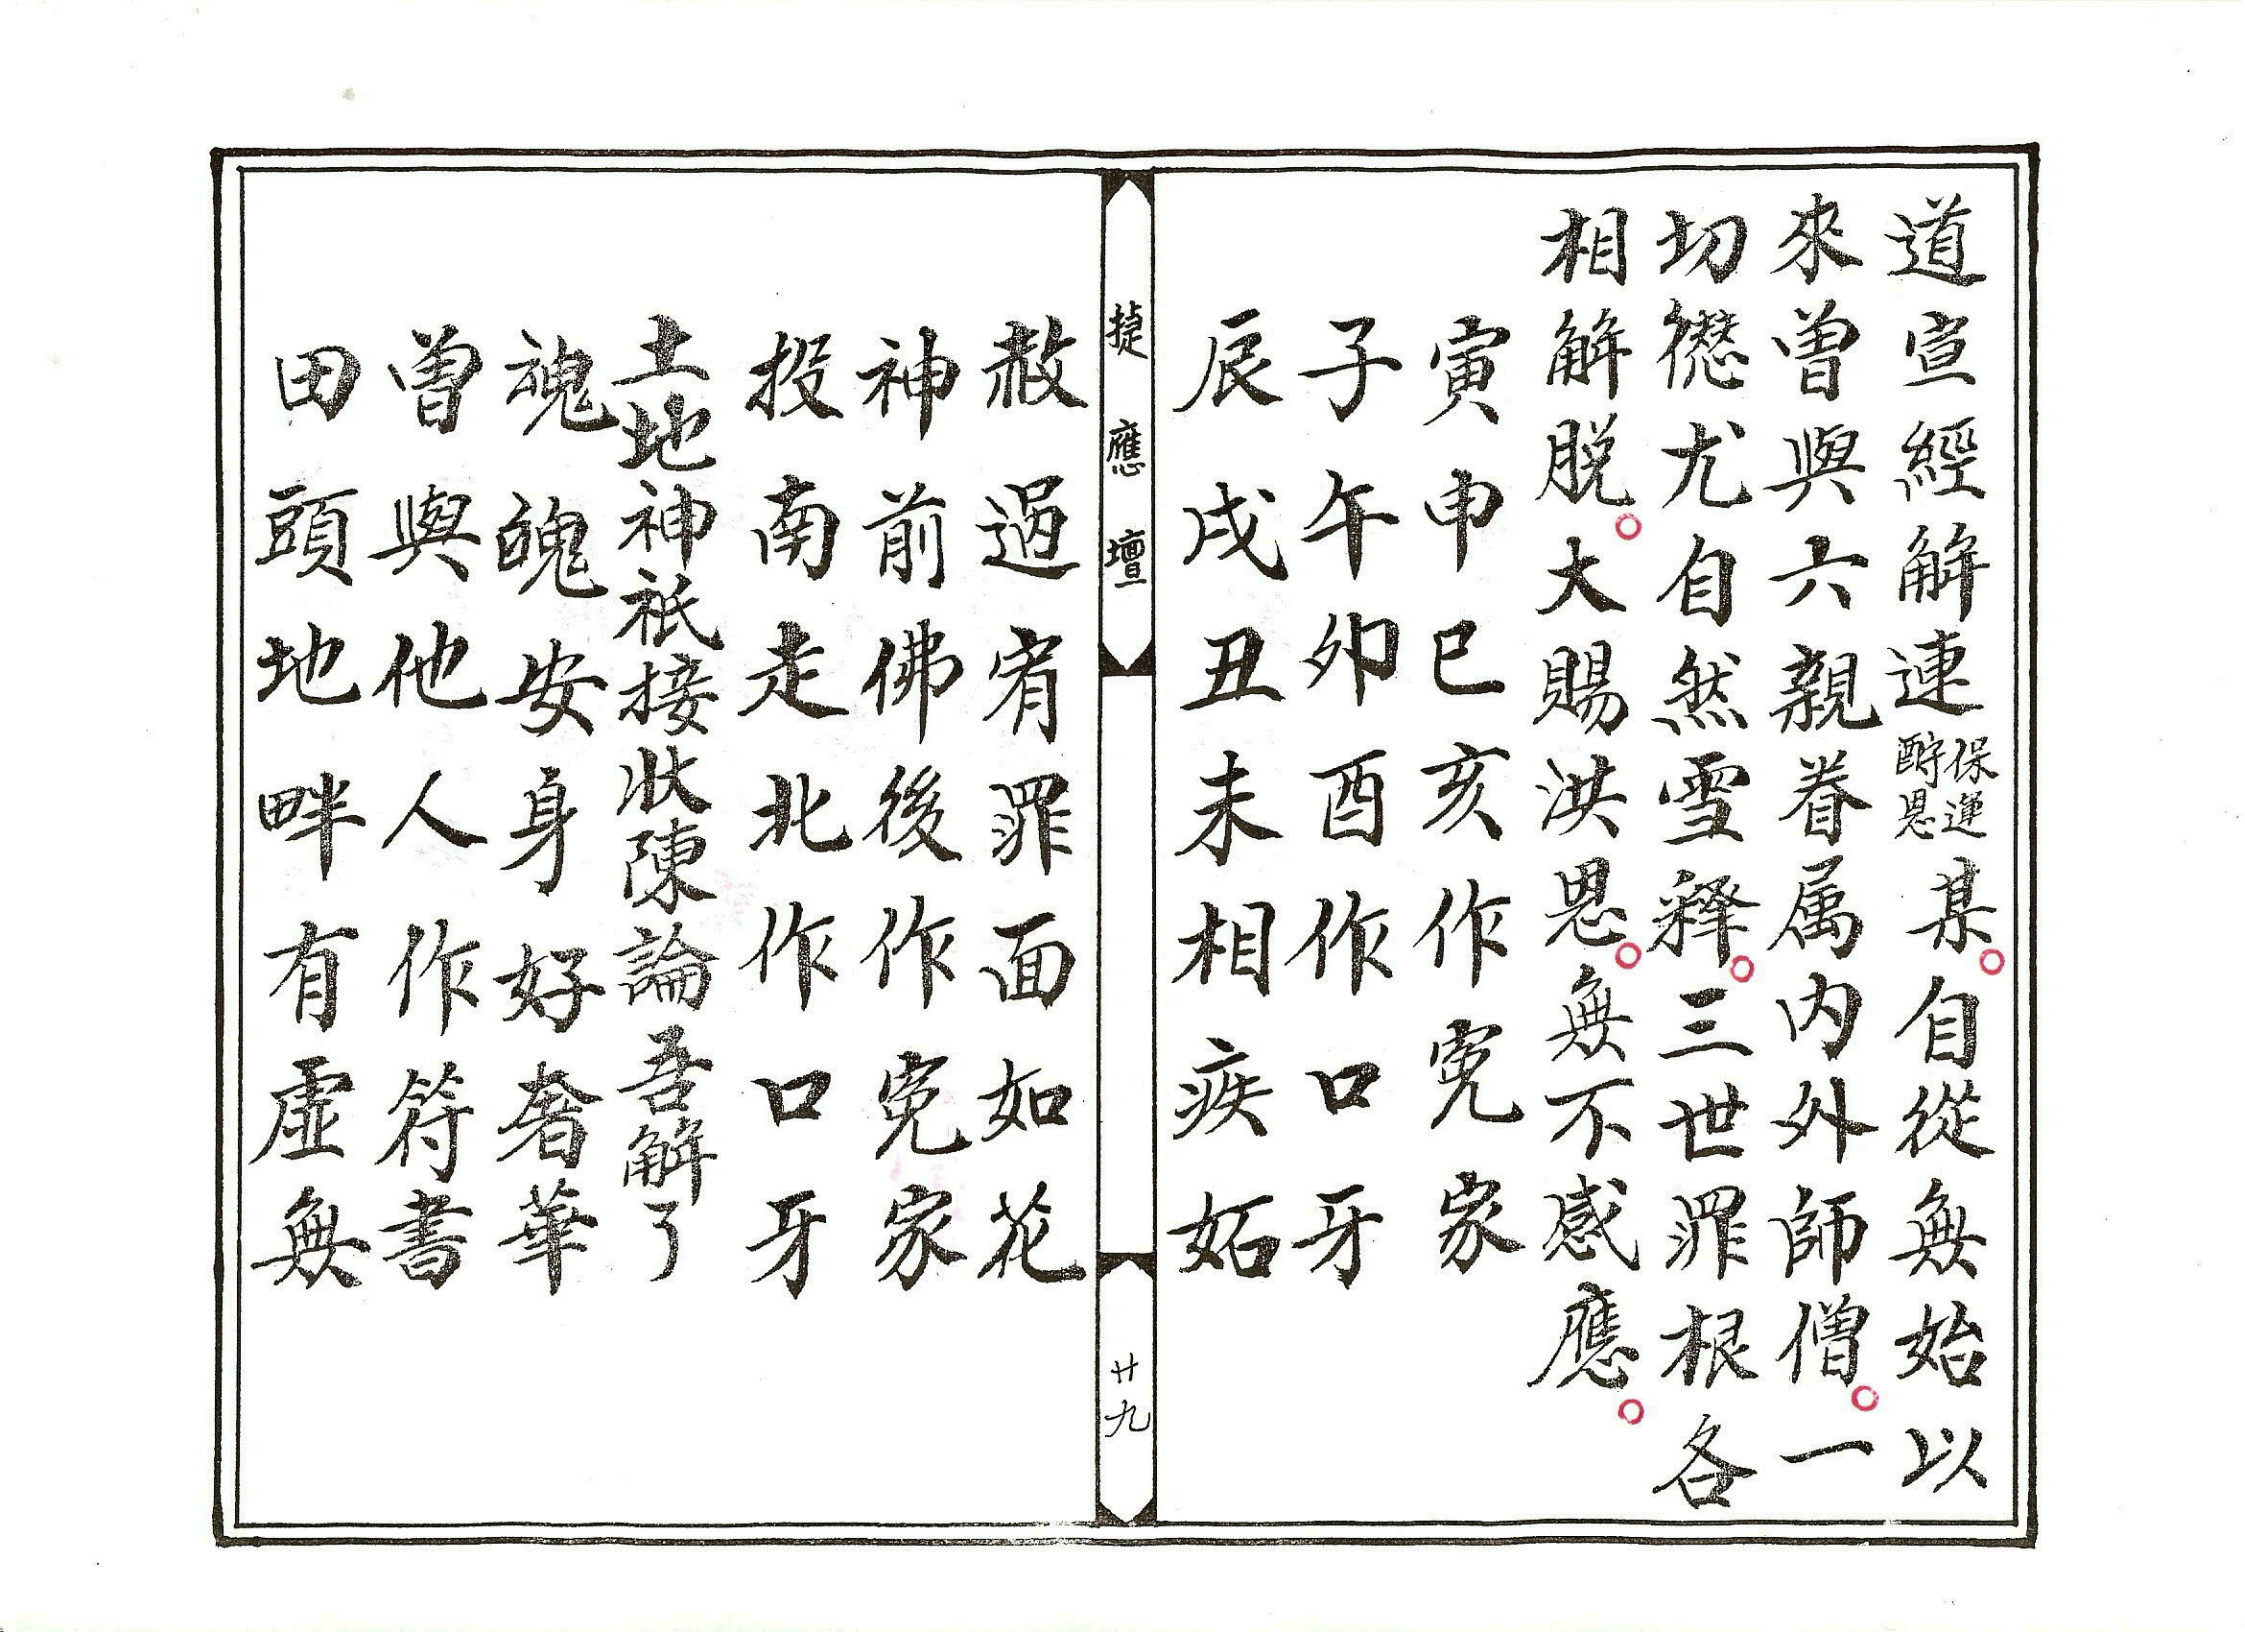 道宣經解連保運酧恩某。自從無始以
來曾與六親眷属内外師僧。一
切愆尤自然雪释。三世罪根各
相解脱。大賜洪恩。無不感應。
寅申巳亥作寃家
子午卯酉作口牙
辰戌丑未相疾妬
捷應壇
廿九
赦過宥罪面如花
神前佛後作寃家
投南走北作口牙
土地神祇接狀陳論吾解了
魂魄安身好奢華
曾與他人作符書
田頭地畔有虛無